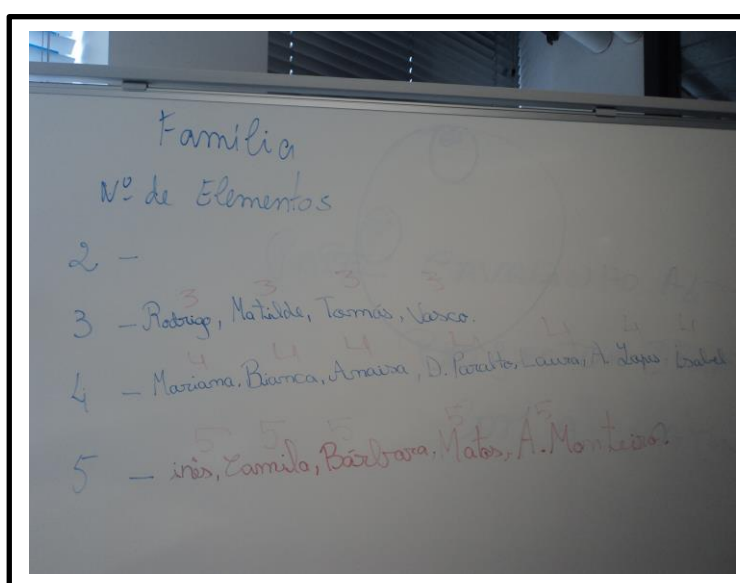 Família
Nº de Elementos
2 -
3 3 3 3
3 - Rodrigo, Matilde, Tomás, Vasco.
4 4 4 4 4 4 4
4 - Mariana, Bianca, Anaisa, D. Paralto, Laura, A. Lopes Isabel
5 5 5 5 5
5 - inês, Camila, Bárbara, Matos, A. Monteiro.